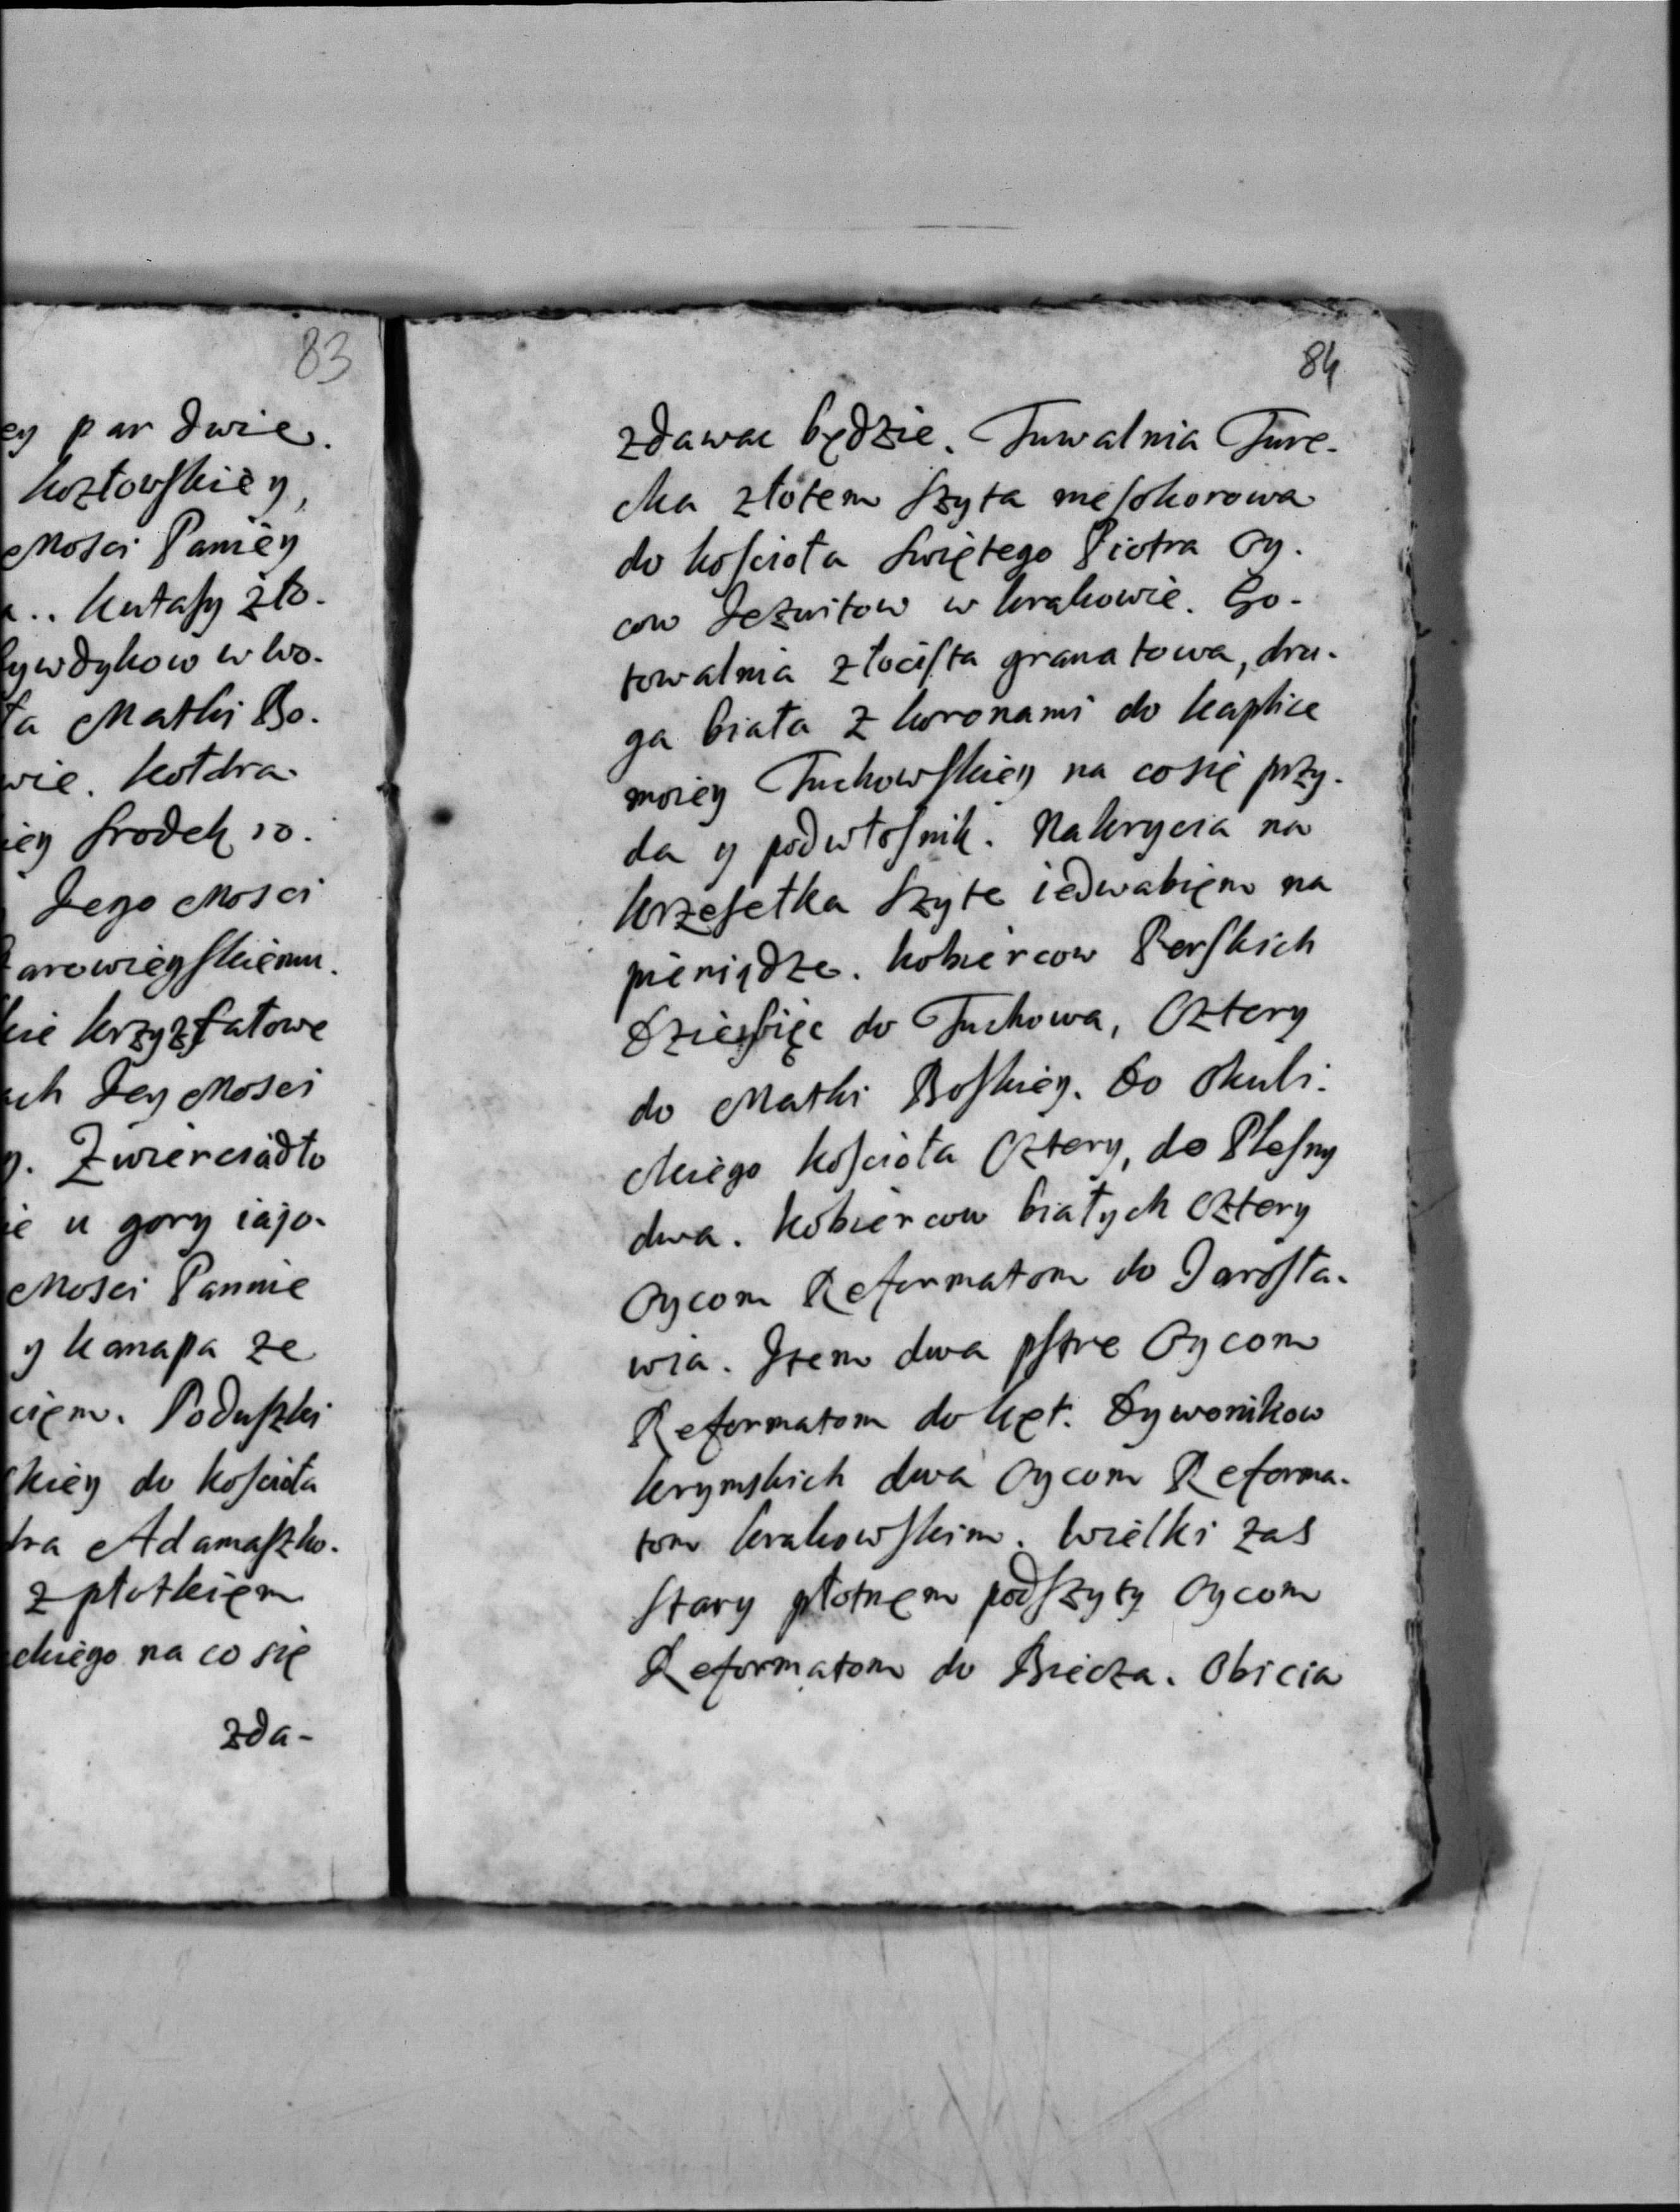 83
ey par dwie.
kozłowskiey,
Mosci Panięy
a.. kutasy zło-
ływdykow w ko-
ła Matki Bo-
wie. kołdra
iey srodek 10.
Jego Mosci
arowieyskiemu.
kie krzysztatowe
ach Jey Mosci
y. Zwierciadło
ie u gory iajo-
Mosci Pannie
y kanapa ze
cięm. Poduszki
skiey do kościoła
dra Adamaszko-
z płotkięm
ckiego na co się
zda-
84
zdawac będzie. Tuwalnia Ture-
cka złotem szyta mesokorowa
do kościoła swiętego Piotra Oy-
cow Jezuitow w krakowie. Go-
towalnia złocista granatowa, dru-
ga biała z koronami do kaplice
moiey Tuchowskiey na co się przy-
da y podwłosnik. Nakrycia na
krzesełka szyte iedwabięm na
pieniądze. kobiercow Perskich
Dziesięc do Tuchowa, Cztery
do Matki Boskiey. Do Skuli-
ckiego kościoła Cztery, do Plesny
dwa. kobiercow białych Cztery
Oycom Reformatom do Jarosła-
wia. Item dwa pstre Oycom
Reformatom do kęt. Dywonikow
krymskich dwa Oycom Reforma-
tom krakowskim. Wielki zas
stary płotnem podszyty Oycom
Reformatom do Biecza. Obicia